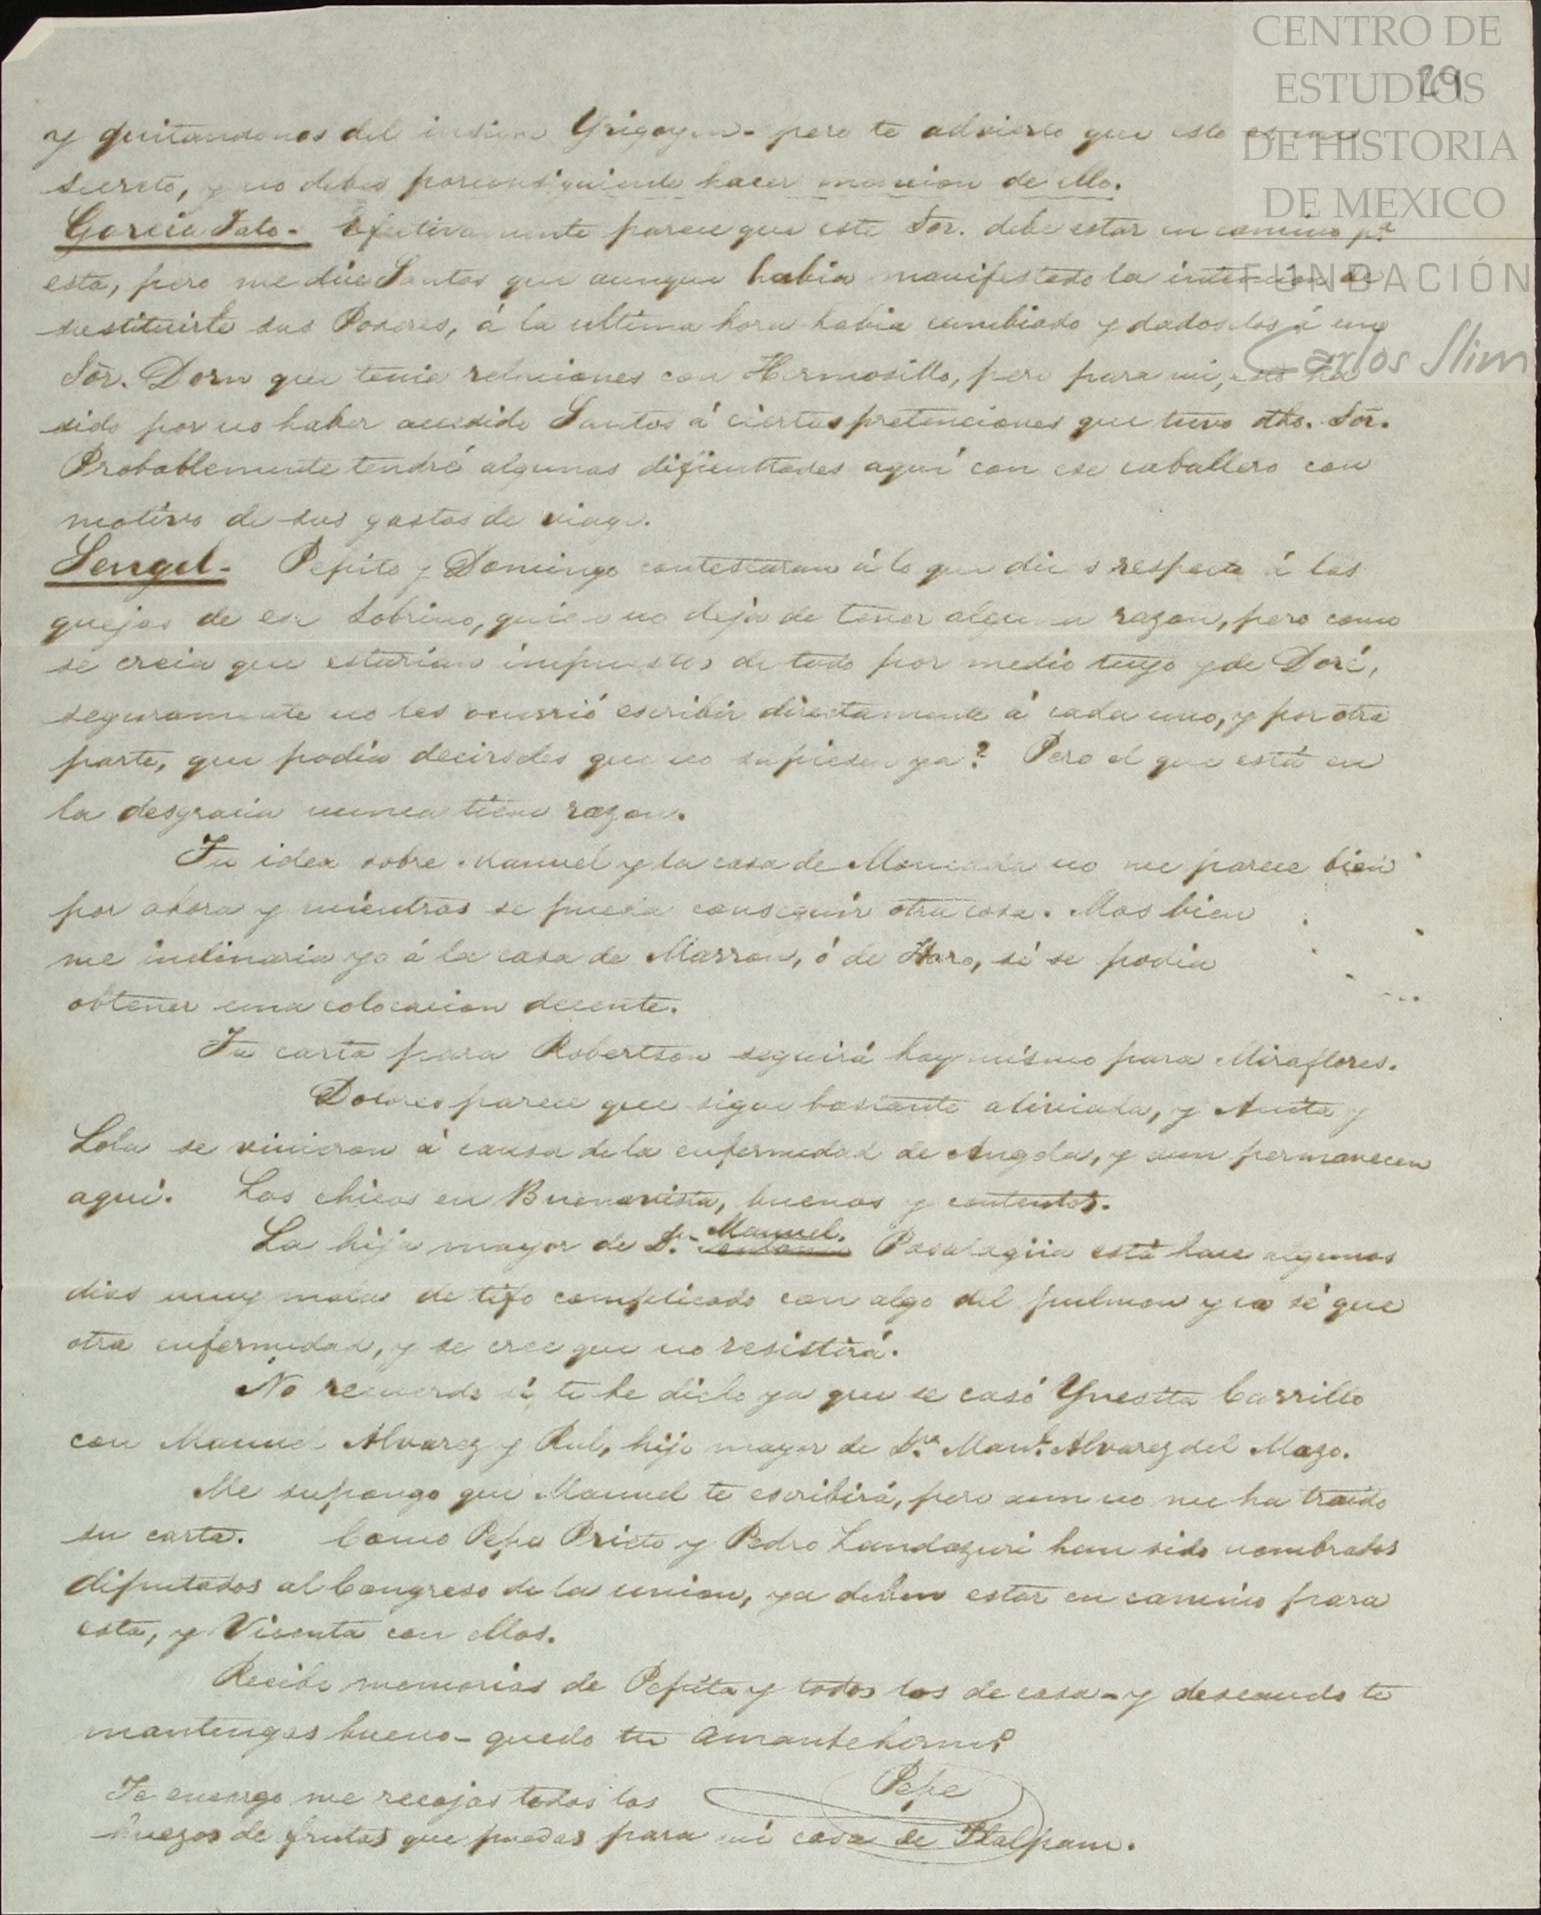 CENTRO DE
ESTUDIOS
DE HISTORIA
DE MEXICO
FUNDACIÓN
Carlos Slim
29
y quitandonos del Yrigoyen - pero te advierto que esto es un
secreto, y no debes porconsiguiente hacer mencion de ello.
Garcia Tato - Efectivamente parece que este Sor. debe estar en camino pa.
esta, pero me dice Santos que aunque habia manifestado la intencion de
sustituirle sus Poderes, á la ultima hora habia cambiado y dadoselos á un
Sor. Dorn que tenia relaciones con Hermosillo, pero para mi, esto ha
sido por no haber accedido Santos á ciertas pretenciones que tuvo dho. Sor.
Probablemente tendré algunas dificultades aqui con ese caballero con
motivo de sus gastos de viage.
Sengel - Pepito y Domingo contestaran á lo que dices respecto á las
quejas de ese Sobrino, quien no deja de tener alguna razon, pero como
se creia que estarian impuestos de todo por medio tuyo y de Doré,
seguramente no les ocurrió escribir directamente á cada uno, y por otra
parte, que podia decirseles que no supiesen ya? Pero el que está en
la desgracia nunca tiene razon.
Tu idea sobre Manuel y la casa de Moncada no me parece bien
por ahora y mientras se pueda conseguir otra cosa. Mas bien
me inclinaria yo á la casa de Marron, ó de Haro, si se podia
obtener una colocacion decente.
Tu carta para Robertson seguirá hoy mismo para Miraflores.
Dolores parece que sigue bastante aliviada, y Anita y
Lola se vinieron á causa de la enfermedad de Angela, y aun permanecen
aqui. Los chicos en Buenavista, buenos y contentos.
La hija mayor de Dn. Manuel. Pasalagüa está hace algunos
dias muy mala de tifo complicado con algo del pulmon y no sé que
otra enfermedad, y se cree que no resistirá.
No recuerdo si te he dicho ya que se casó Ynesita Carrillo
con Manuel Alvarez y Rul, hijo mayor de Dn. Manl. Alvarez del Mazo.
Me supongo que Manuel te escribirá, pero aun no me ha traido
su carta. Como Pepe Prieto y Pedro Landazuri han sido nombrados
diputados al Congreso de la union, ya deben estar en camino para
esta, y Vicenta con ellos.
Recibe memorias de Pepita y todos los de casa - y deseando te
mantengas bueno - quedo tu amante hermo.
Pepe
Te encargo me recojas todos los
huezos de frutas que puedas para mi casa de Tlalpam.